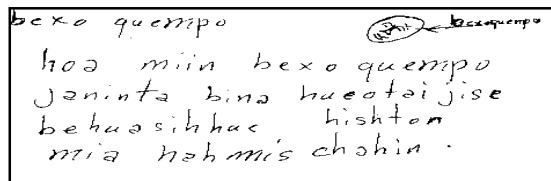 bexo quempo
bexoquempo
hoa miin bexo quempo
janinta bina hueotai jise
behuasihhuc hishton
mia hahmis chahin.